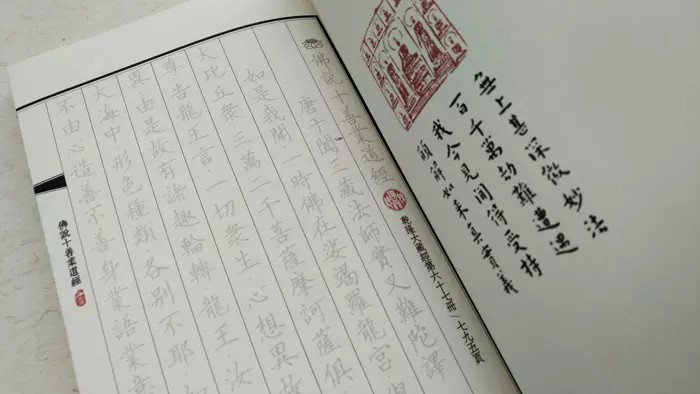 無上甚深微妙法
百千萬劫難遭遇
我今見聞得受持
願解如來真實義
乾隆大藏經第六十七冊/七九五頁
佛說十善業道經
唐于闐三藏法師實叉難陀譯
如是我聞一時佛在娑竭羅龍宮
大比丘衆三萬二千菩薩摩訶薩俱
尊告龍王言一切衆生心想異故
異由是故有諸趣輪轉龍王汝
大海中形色種類各別不耶如
不由心造善不善身業語業意
佛說十善業道經